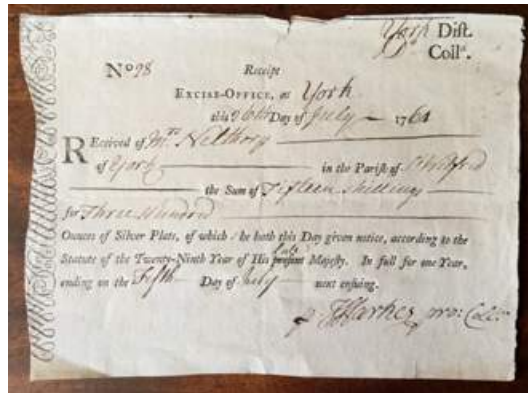 York Dist.
Do Coll.
No 98 Receipt
EXCISE-OFFICE, at York
this Day of July 1761
Received of Mrs. Nelthorp
of York in the Parish of
the Sum of Fifteen Shillings
for Three Hundred
Ounces of Silver Plate, of which he hath this Day given notice, according to the
Statute of the Twenty-Ninth Year of His late present Majesty. In full for one Year,
ending on the Fifth Day of July next ensuing.
pro: Coll.